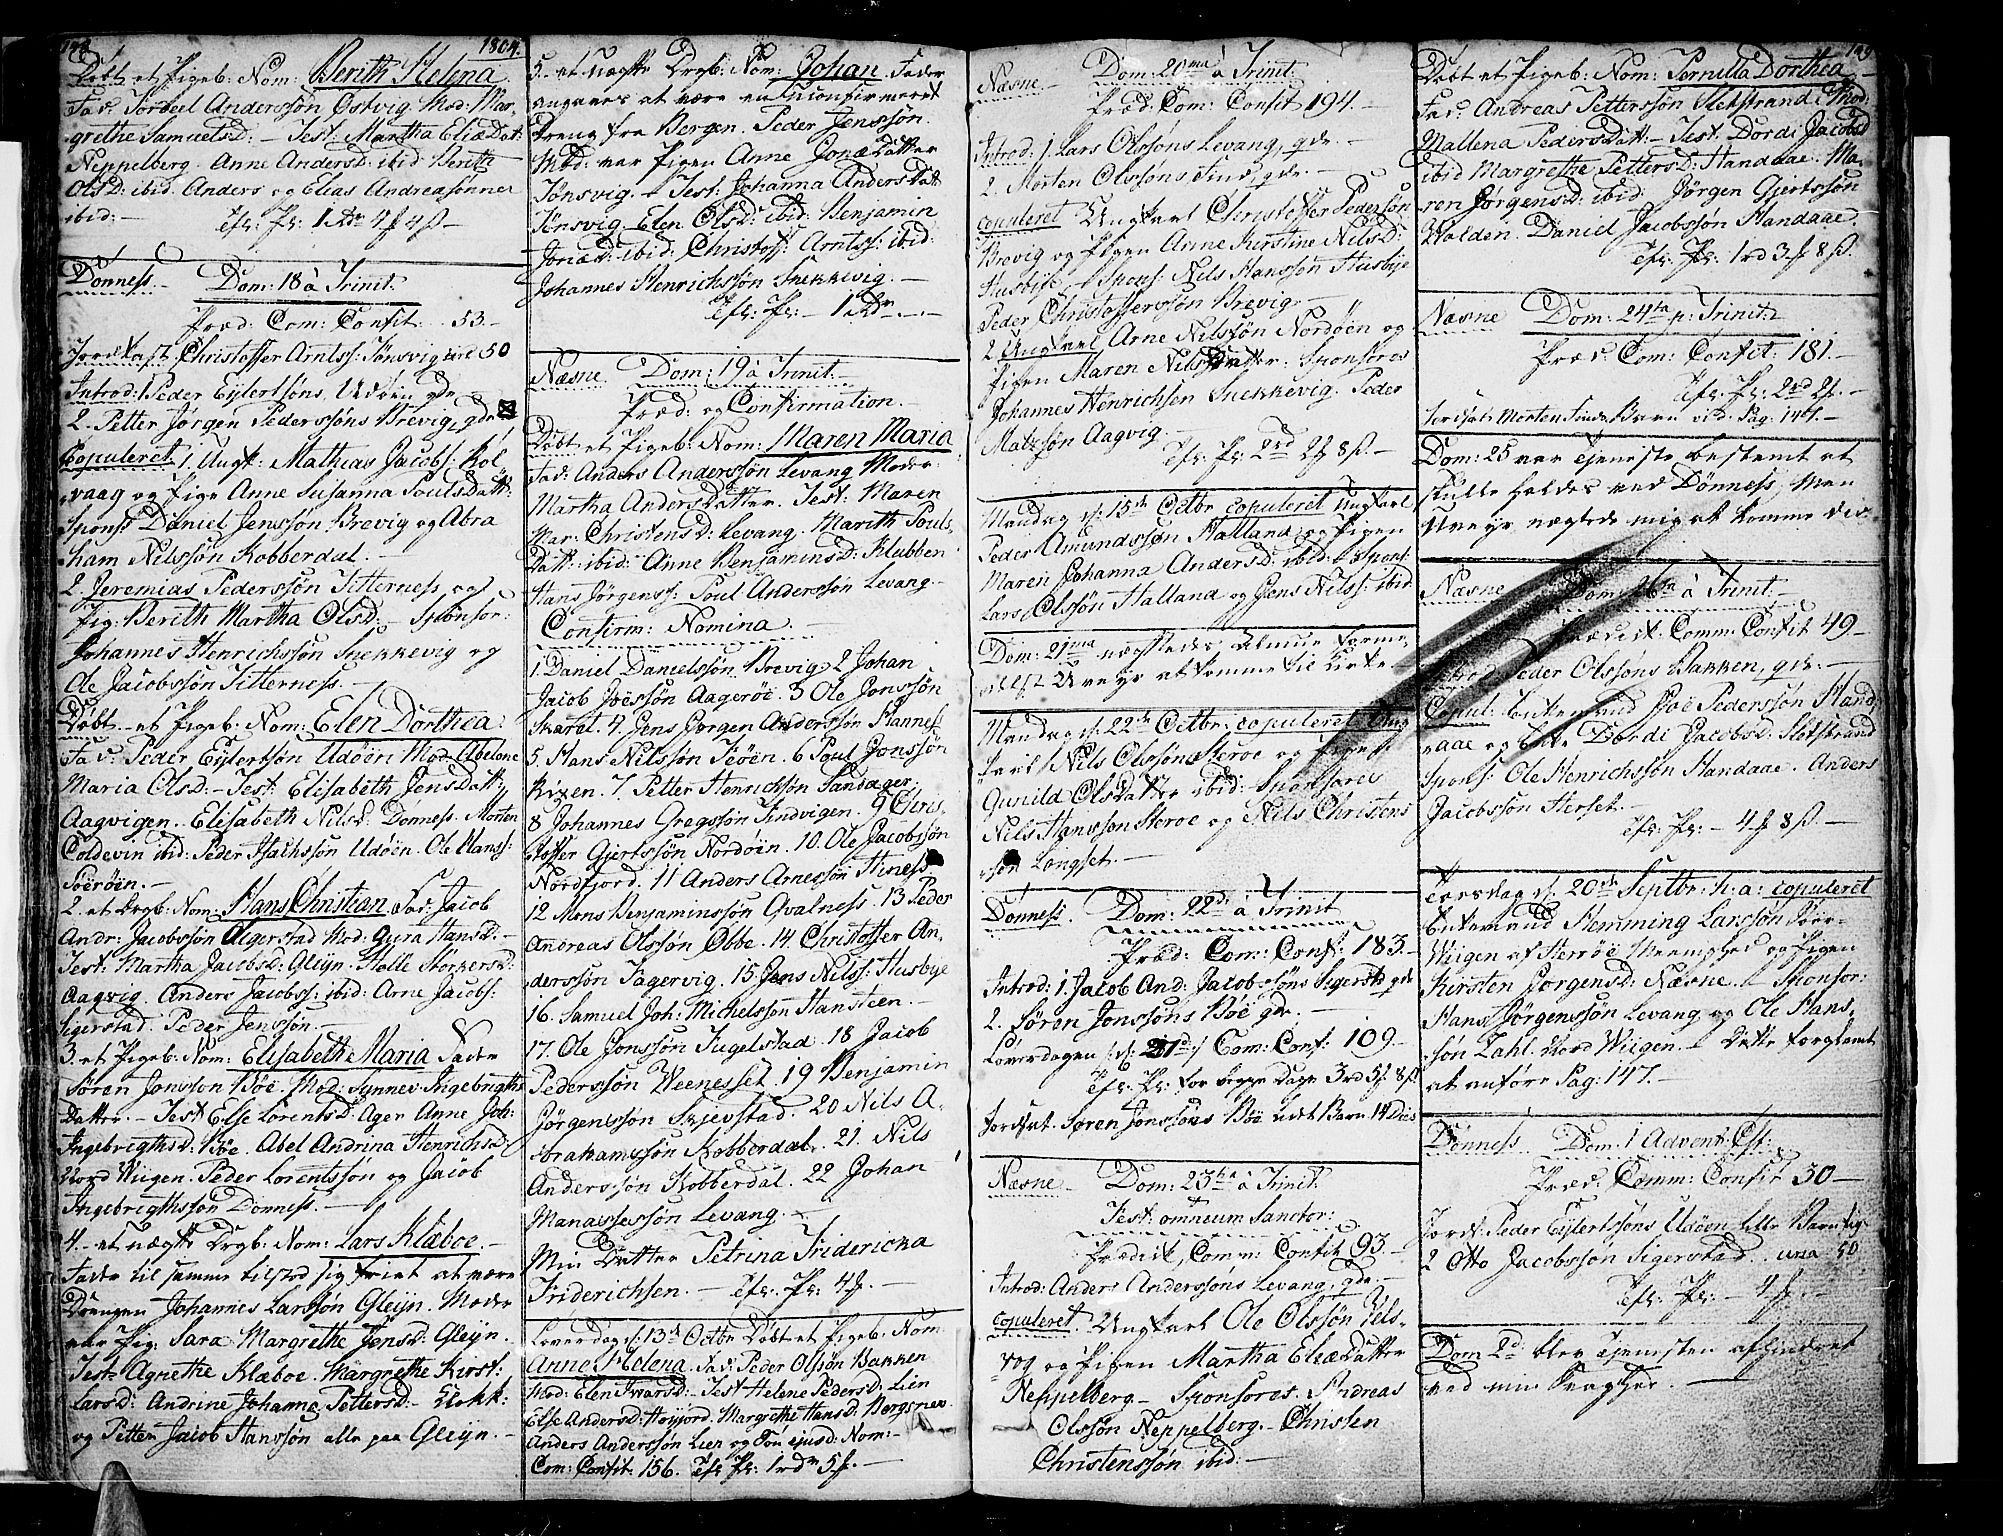 148 1804.
Døbt et Pigeb: Nom: Berith Helena
Fad: Tordeel Anderssøn Østvig Mod: Mar-
grethe Samuelsd: – Test: Martha Eliædat:
Neppelberg. Anne Andersd: ibid Berith
Olsd: ibid: Anders og Elias Andreasønner
ibid: –
Dønness. Dom: 18 à Trinit:
Præd: Com: Confit: 53.–
Jordkast Christoffer Arntss: Tønsvig 50
Introd: 1 Peder Eylertsøns Udøen gde
2. Petter Jørgen Pederssøns Brevig, gde
Copuleret 1. Ungk: Mathias Jacobs: Kol
vaag og Pige Anne Susanna Poulsdatt:
Spons: Daniel Jenssøn Brevig og Abra
ham Nilssøn Kobberdal. –
2. Jeremias Pederssøn Titterness, og
Pig: Berith Martha Olsd: – Sponsor:
Johannes Henrichssøn Snekkevig og
Ole Jacobssøn Titterness. –
Døbt et Pigeb: Nom: Elen Dorthea:
Fad: Peder Eylertsøn Udøen Mod: Abelone
Maria Olsd: – Test: Elisabeth Jensdatt:
Aagvigen. Elisabeth Nilsd: Dønness. Morten
Coldevin ibid: Peder Isachsøn Udøen. Ole Hanss:
Soerøen. –
2. et Drgb: Nom: Hans Christian Fad: Jacob
Andr: Jacobssøn Sigerstad Mod: Gura Hansd: –
Test: Martha Jacobsd: Gleyn. Helle Storkersd:
Aagvig. Anders Jacobss: ibid: Arne Jacobs:
Sigerstad: Peder Jenssøn. –
3. et Pigeb: Nom: Elisabeth Maria Fader
Søren Jonssøn Bøe. Mod: Synnev Ingebrigths
Datter. – Test Else Lorentsd: Ager Anne Joh:
Ingebrigthsd: Bøe. Abel Andrina Henrichsd:
Nord Wiigen. Peder Lorentssøn og Jacob
Ingebrigthssøn Dønness. –
4. – et uægte Drgb: Nom: Lars Klæboe. –
Fader til samme tilstod sig friet at være
Drengen Johannes Larssøn Gleyn. Moder
var Pig: Sara Margrethe Jensd: Gleyn.
Test: Agnethe Klæboe. Margrethe Kirst:
Larsd: Andrine Johanne Pettersd:
og Petter Jacob Hanssøn alle paa Gleyn. –
5. et uægte Drgb: Nom: Johan. Fader
angaves at være en Uconfirmeret
Dreng fra Bergen. Peder Jenssøn.
Mod: var Pigen Anne Jonædatter
Tønsvig. – Test: Johanna Andersdatt
Tønsvig. Elen Olsd: ibid: Benjamin
Jonæd: ibid: Christoff: Arntss: ibid:
Johannes Henrichssøn Snekkevig. –
Næsne. Dom: 19 à Trinit. –
Præd: og Confirmation. –
Døbt et Pigeb: Nom: Maren Maria
Fad: Anders Anderssøn Levang Moder:
Martha Andersdatter. Test: Maren
Mar: Christensd: Levang. Marith Pouls-
Datt: ibid: Anne Benjaminsd: Klubben
Hans Jørgenss: Poul Anderssøn Levang.
Confirm: Nomina. –
1. Daniel Danielssøn Brevig. 2 Johan
Jacob Joessøn Aagerøe. 3 Ole Jonssøn
Skaret. 4 Jens Jørgen Anderssøn Hanness
5. Hans Nilssøn Feøen. 6 Poul Jonssøn
7. Petter Henrichssøn Sandager.
8 Johannes Gregssøn Tindvigen. 9 Chris-
stoffer Giertssøn Nordøen. 10. Ole Jacobssøn
Nordfjord. 11 Anders Arnessøn Hiness
12 Mons Benjaminssøn Qvalness. 13 Peder
Andreas Olssøn Øbbe. 14. Christoffer An-
derssøn Fagervig. 15 Jens Nilss: Husbye
16. Samuel Joh: Michelssøn Hansteen. –
17. Ole Jonssøn Fugelstad. 18 Jacob
Pederssøn Weenesset. 19 Benjamin
Jørgenssøn Skjevstad. 20 Nils A-
brahamssøn Kobberdal. 21. Nils
Anderssøn Kobberdal. 22 Johan
Manassessøn Levang. –
Min Datter Petrina Fridericka
Friderichsen. –
Løverdag d: 13de Octbr. Døbt et Pigeb: Nom:
Anne Helena. Fad: Peder Olssøn Bakken
Mod: Elen Ivarsd: – Test Helene Pedersd: Lien
Else Andersd: Høyjord. Margrethe Hansd: Borgsnev.
Anders Anderssøn Lien og Ton ejusd: Nom: –
Com: Confit: 156.
Næsne. Dom: 20ma à Trinit:
Præd: Com: Confit 194. –
Introd: 1 Lars Olssøns Levang, gde. –
2. Morten Olssøns Tind, gde. –
copuleret Ungkarl Christoffer Pederssøn
Brevig og Pigen Anne Kirstine Nilsd:
Husbye, Spons: Nils Hanssøn Husbye
Peder Christofferssøn Brevig. –
2. Ungkarl Arne Nilssøn Nordøen og
Pigen Maren Nilsdatter. Sponsores
Johannes Henrichsen Snekkevig. Peder
Matzsøn Aagvig. –
Mandag d: 15de Octbr. copuleret Ungkarl
Peder Amundssøn Halland og Pigen
Maren Johanna Andersd: ibid: Spons:
Lars Olssøn Halland og Jens Nilss: ibid:
Dom: 21ma nægtedes Almue forme-
delst Uveyr at komme til Kirke
Mandag d: 22de Octbr: copuleret Ung
karl Nils Olssøn Sleroe og Pigen
Gunild Olsdatter ibid: Sponsores
Nils Hanssøn Sleroe og Nils Christens
søn Langset. –
Dønness. Dom: 22de à Trinit
Præd: Com: Conf: 183. –
Introd: 1. Jacob And: Jacobssøns Sigersta gde
2. Søren Jonssøns Bøe gde. –
Løverdagen Com: Conf: 109. –
Jordkst. Søren Jonssøns Bøe lidet Barn 14 Dies
Næsne. Dom: 23tia à Trinit:
Fest: omneum Sanctor:
Prædik, Comm: Confit 93. –
Introd: Anders Anderssøns Levang, gde. –
copuleret. Ungkarl Ole Olssøn
og Pigen Martha Eliædatter
Neppelberg – Sponsores. Andreas
Olssøn Neppelberg. – Christen
Christenssøn ibid: –
149
Døbt et Pigeb: Nom: Pernilla Dorthea
Fad: Andreas Petterssøn Sletstrand: Mod:
Mallena Pedersdatt: – Test: Dordi Jacobsd
ibid Margrethe Pettersd: Handaae. Ma-
ren Jørgensd: ibid: Jørgen Gjertssøn
Walden. Daniel Jacobssøn Handaae
Næsne Dom: 24ta p: Trinit:
Præd: Com: Confit: 181. –
Jordfæst: Morten Tinds Barn vid: Pag: 147. –
Dom: 25 var Tjeneste bestemt at
skulle holdes ved Dønness, Men
Uveyr nægtede mig at komme did. –
Næsne. Dom: 26ta à Trinit. –
Prædik: Comm: Confit 49 –
Introd Peder Olssøns Bakken, gde. –
Copul: Enkemand Joë Pederssøn Hand-
aae og Enke Dordi Jacobsd: Sletstrand
Spons: Ole Henrichssøn Handaae. Anders
Jacobssøn Herset. –
Torsdag d: 20de Septbr: h: a: copuleret
Enkemand Hemming Larssøn
Wiigen af Herrøe Meenighed og Pigen
Kirsten Jørgensd: Næsne. – Sponsor:
Hans Jørgenssøn Levang og Ole Hans-
søn Zahl. Nord Wiigen. – Dette forglemt
at anføre Pag: 147. –
Dønness Dom: 1 Advent: Est:
Præd: Comm: Confit 30 –
Jordk: Peder Eylertssøns Udøen lille Barn
2 Otto Jacobssøn Sigerstad 50
Dom 2d: blev Tjenesten afhindret
ved min Svaghed. –